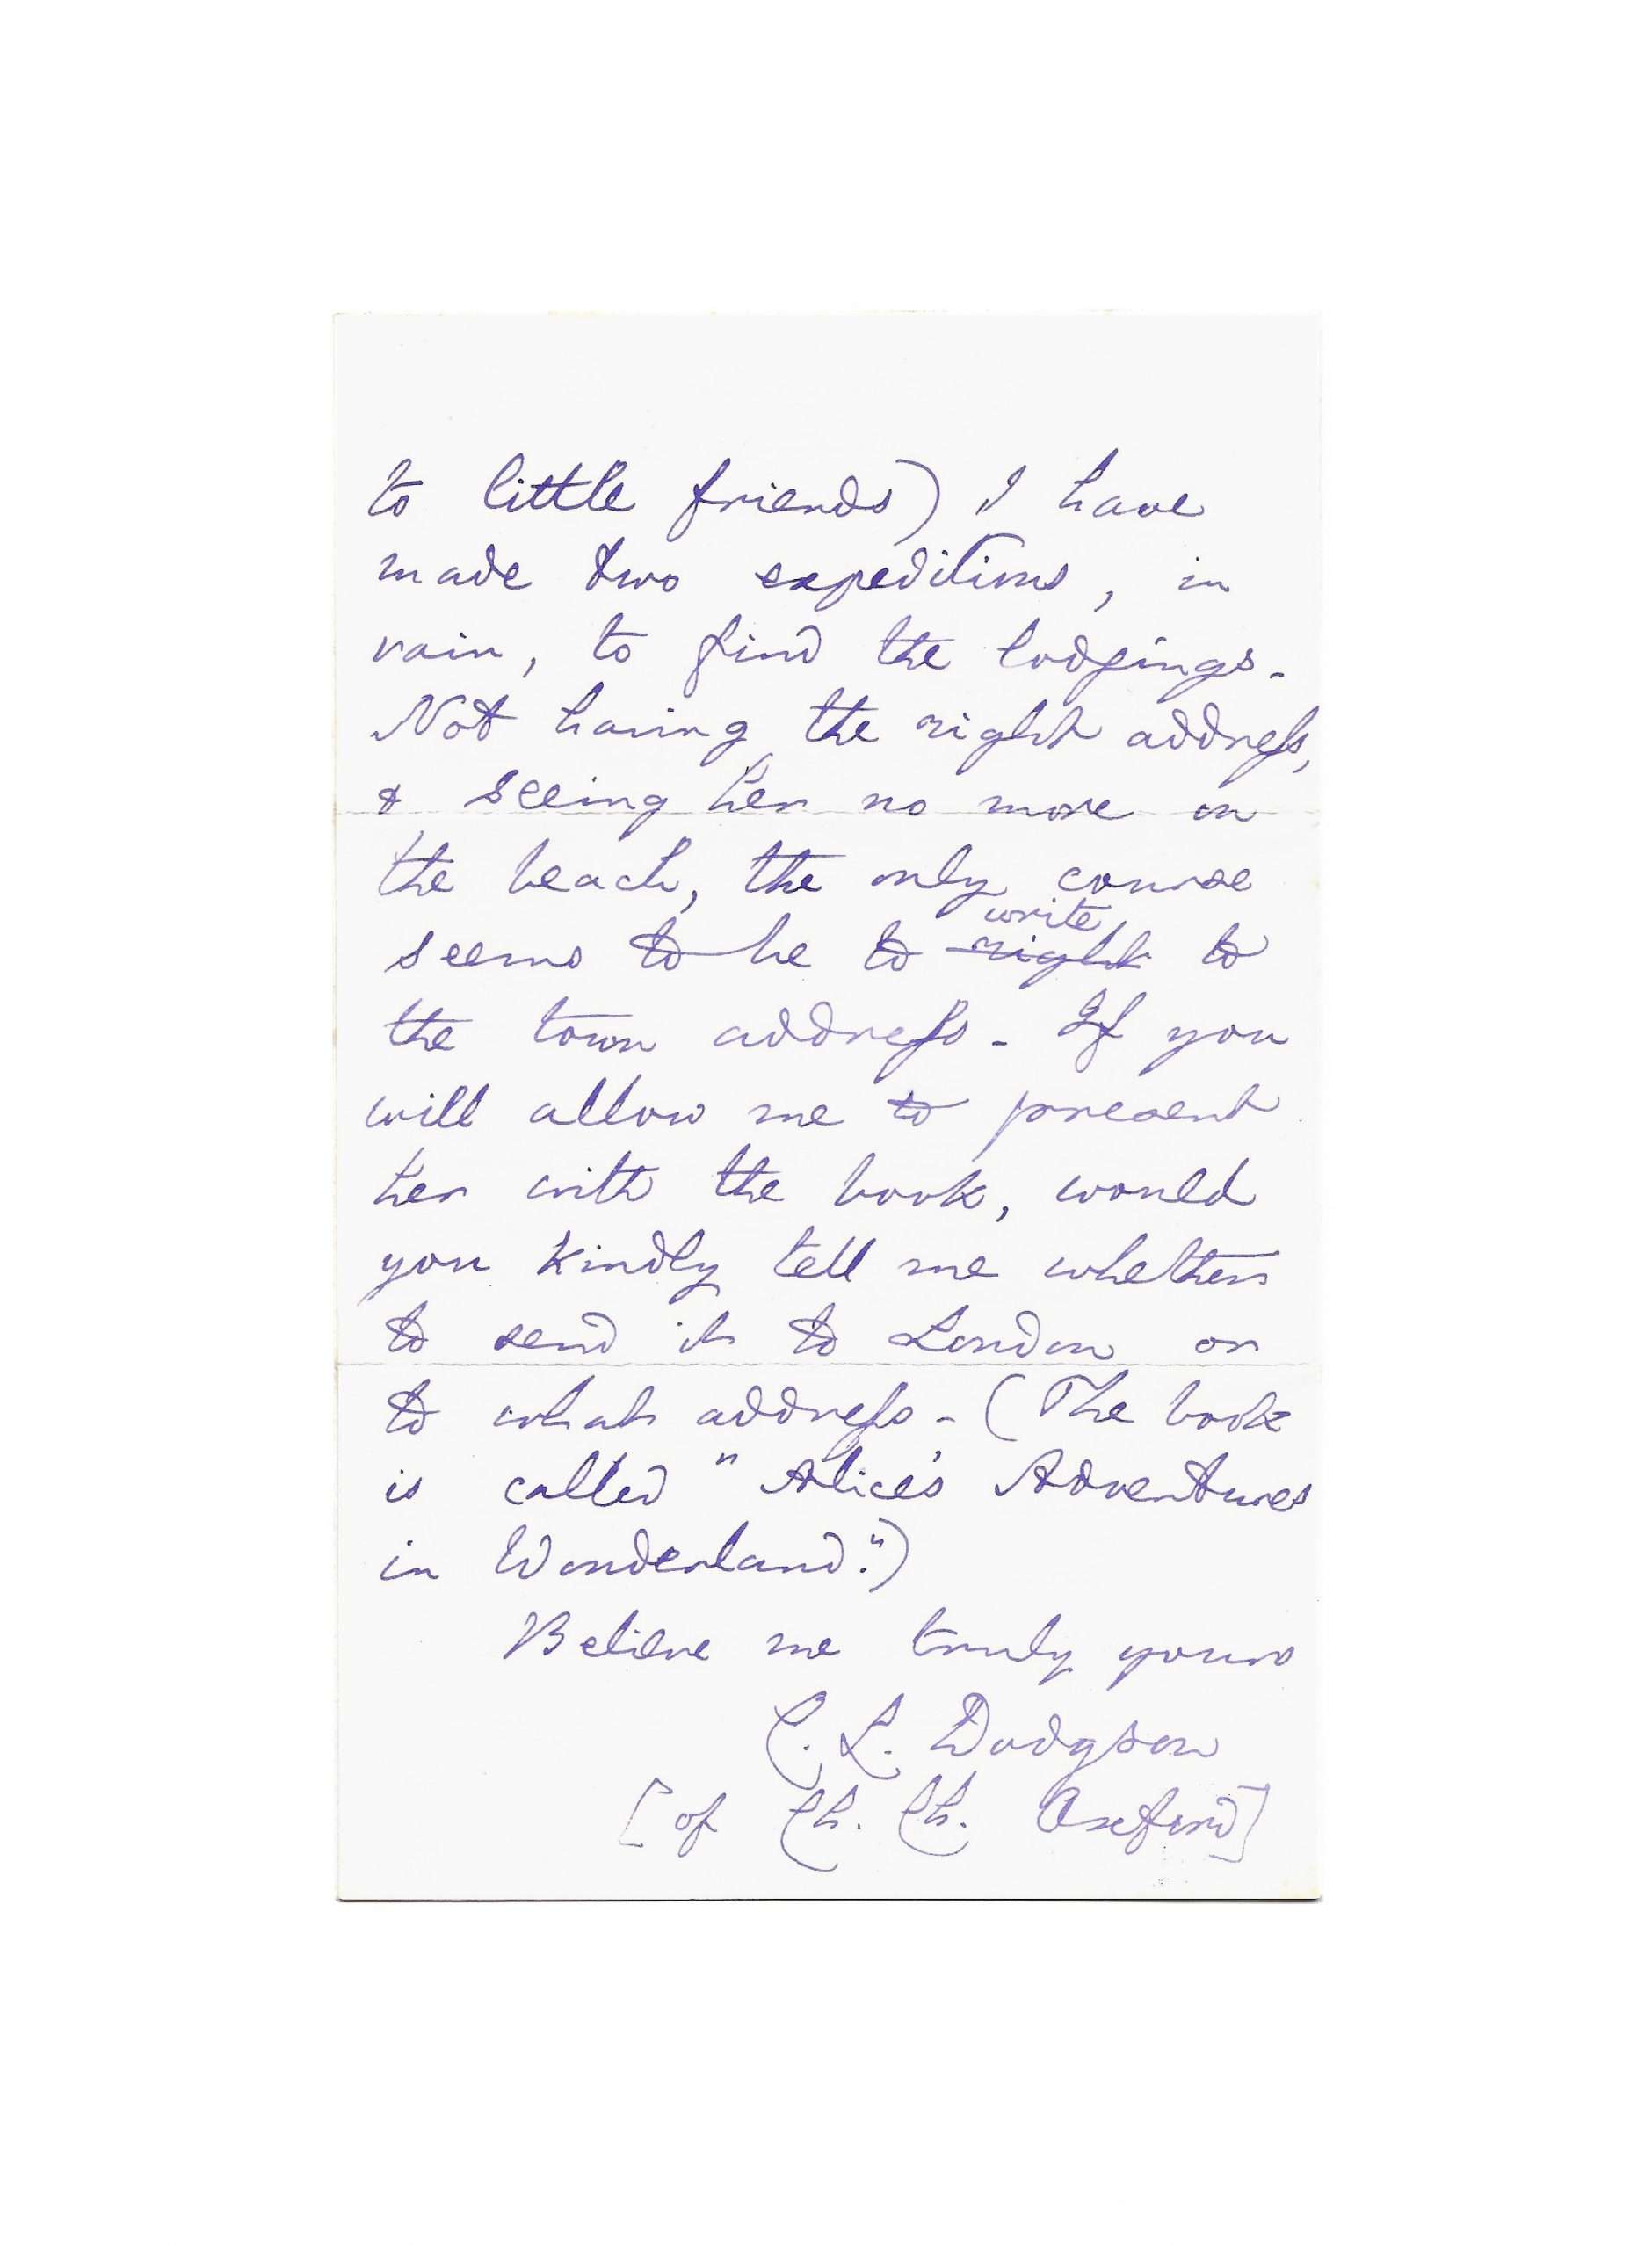 to little friends) I have
made two expeditions, in
vain, to find the lodgings.
Not having the right addreſs,
& seeing her no more on
the beach, the only course
write
seems to be to right to
the town addreſs. If you
will allow me to present
her with the book, would
you kindly tell me whether
to send it to London or
to what addreſs. (The book
is called "Alice's Adventures
in Wonderland.")
Believe me truly yours
C. L. Dodgson
[of Ch. Ch. Oxford]